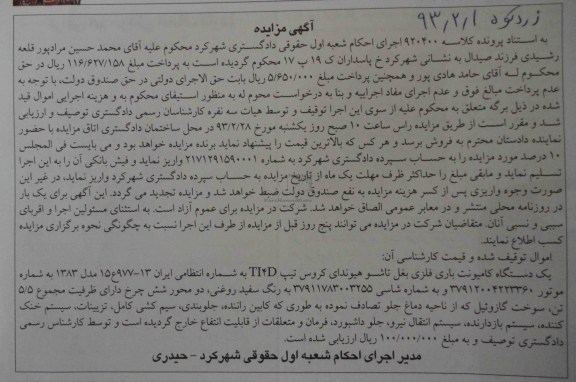 زردکوه ۹۳,۲,۱
آگهی مزایده
به استناد پرونده کلاسه ۹۲۰۴۰۰ اجرای احکام شعبه اول حقوقی دادگستری شهرکرد محکوم علیه آقای محمد حسین مرادپور قلعه
رشیدی فرزند صیدال به نشانی شهرکرد خ پاسداران ک ۱۹ پ ۱۷ محکوم گردیده است به پرداخت مبلغ ۱۱۶/۶۲۷/۱۵۸ ریال در حق
محکوم لـه آقای حامد هادی پور و همچنین پرداخت مبلغ ۵/۶۵۰/۰۰۰ ریال بابت حق الاجرای دولتی در حق صندوق دولت، با توجه به
عدم پرداخت مبالغ فوق و عدم اجرای مفاد اجراییه و بنا به درخواست محوم له به منظور استیفای محکوم به و هزینه اجرایی اموال قید
شده در ذیل برگه متعلق به محکوم علیه از سوی این اجرا توقیف و توسط هیات سه نفره کارشناسان رسمی دادگستری توصیف و ارزیابی
شد و مقرر است از طریق مزایده راس ساعت ۱۰ صبح روز یکشنبه مورخ ۹۳/۲/۲۸ در محل ساختمان دادگستری اتاق مزایده با حضور
نماینده دادستان محترم به فروش برسد و هر کس که بالاترین قیمت را پیشنهاد نماید برنده مزایده خواهد بود و می بایست فی المجلس
۱۰ درصد مورد مزایده را به حساب سپرده دادگستری شهرکرد به شماره ۲۱۷۱۲۹۱۵۹۰۰۰۱ واریز نماید و فیش بانکی آن را به این اجرا
تسلیم نماید و مابقی مبلغ را حداکثر ظرف مهلت یک ماه از تاریخ مزایده به حساب سپرده دادگستری شهرکرد واریز نماید، در غیر این
صورت وجوه واریزی پس از کسر هزینه مزایده به نفع صندوق دولت ضبط خواهد شد و مزایده تجدید می گردد. این آگهی برای یک بار
در روزنامه محلی منتشر و در معابر عمومی الصاق خواهد شد. شرکت در مزایده برای عموم آزاد است. به استثنای مسئولین اجرا و اقربای
سببی و نسبی آنان. متقاضیان شرکت در مزایده می توانند پنج روز قبل از مزایده از طرف این اجرا نسبت به چگونگی نحوه برگزاری مزایده
کسب اطلاع نمایند.
اموال توقیف شده و قیمت کارشناسی آن:
یک دستگاه کامیونت باری فلزی بغل تاشو هیوندای کروس تیپ TI۴D به شماره انتظامی ایران ۱۳-۹۷۷ع۱۵ مدل ۱۳۸۳ به شماره
موتور ۳۷۹۱۲۰۰۴۲۲۳۳۶۰ و به شماره شاسی ۳۷۹۱۱۷۸۳۰۰۳۲۵۵ به رنگ سفید روغنی، دو محور شش چرخ دارای ظرفیت مجموع ۵/۵
تن، سوخت گازوئیل که از ناحیه دماغ جلو تصادف نموده به طوری که کابین راننده، جلوبندی، سیم کشی کامل، تزیینات، سیستم خنک
کننده، سیستم بازدارنده، سیستم انتقال نیرو، جلو داشبورد، فرمان و متعلقات از قابلیت انتفاع خارج گردیده است و توسط کارشناس رسمی
دادگستری توصیف و به مبلغ ۱۰۰/۰۰۰/۰۰۰ ریال ارزیابی شده است.
مدیر اجرای احکام شعبه اول حقوقی شهرکرد - حیدری